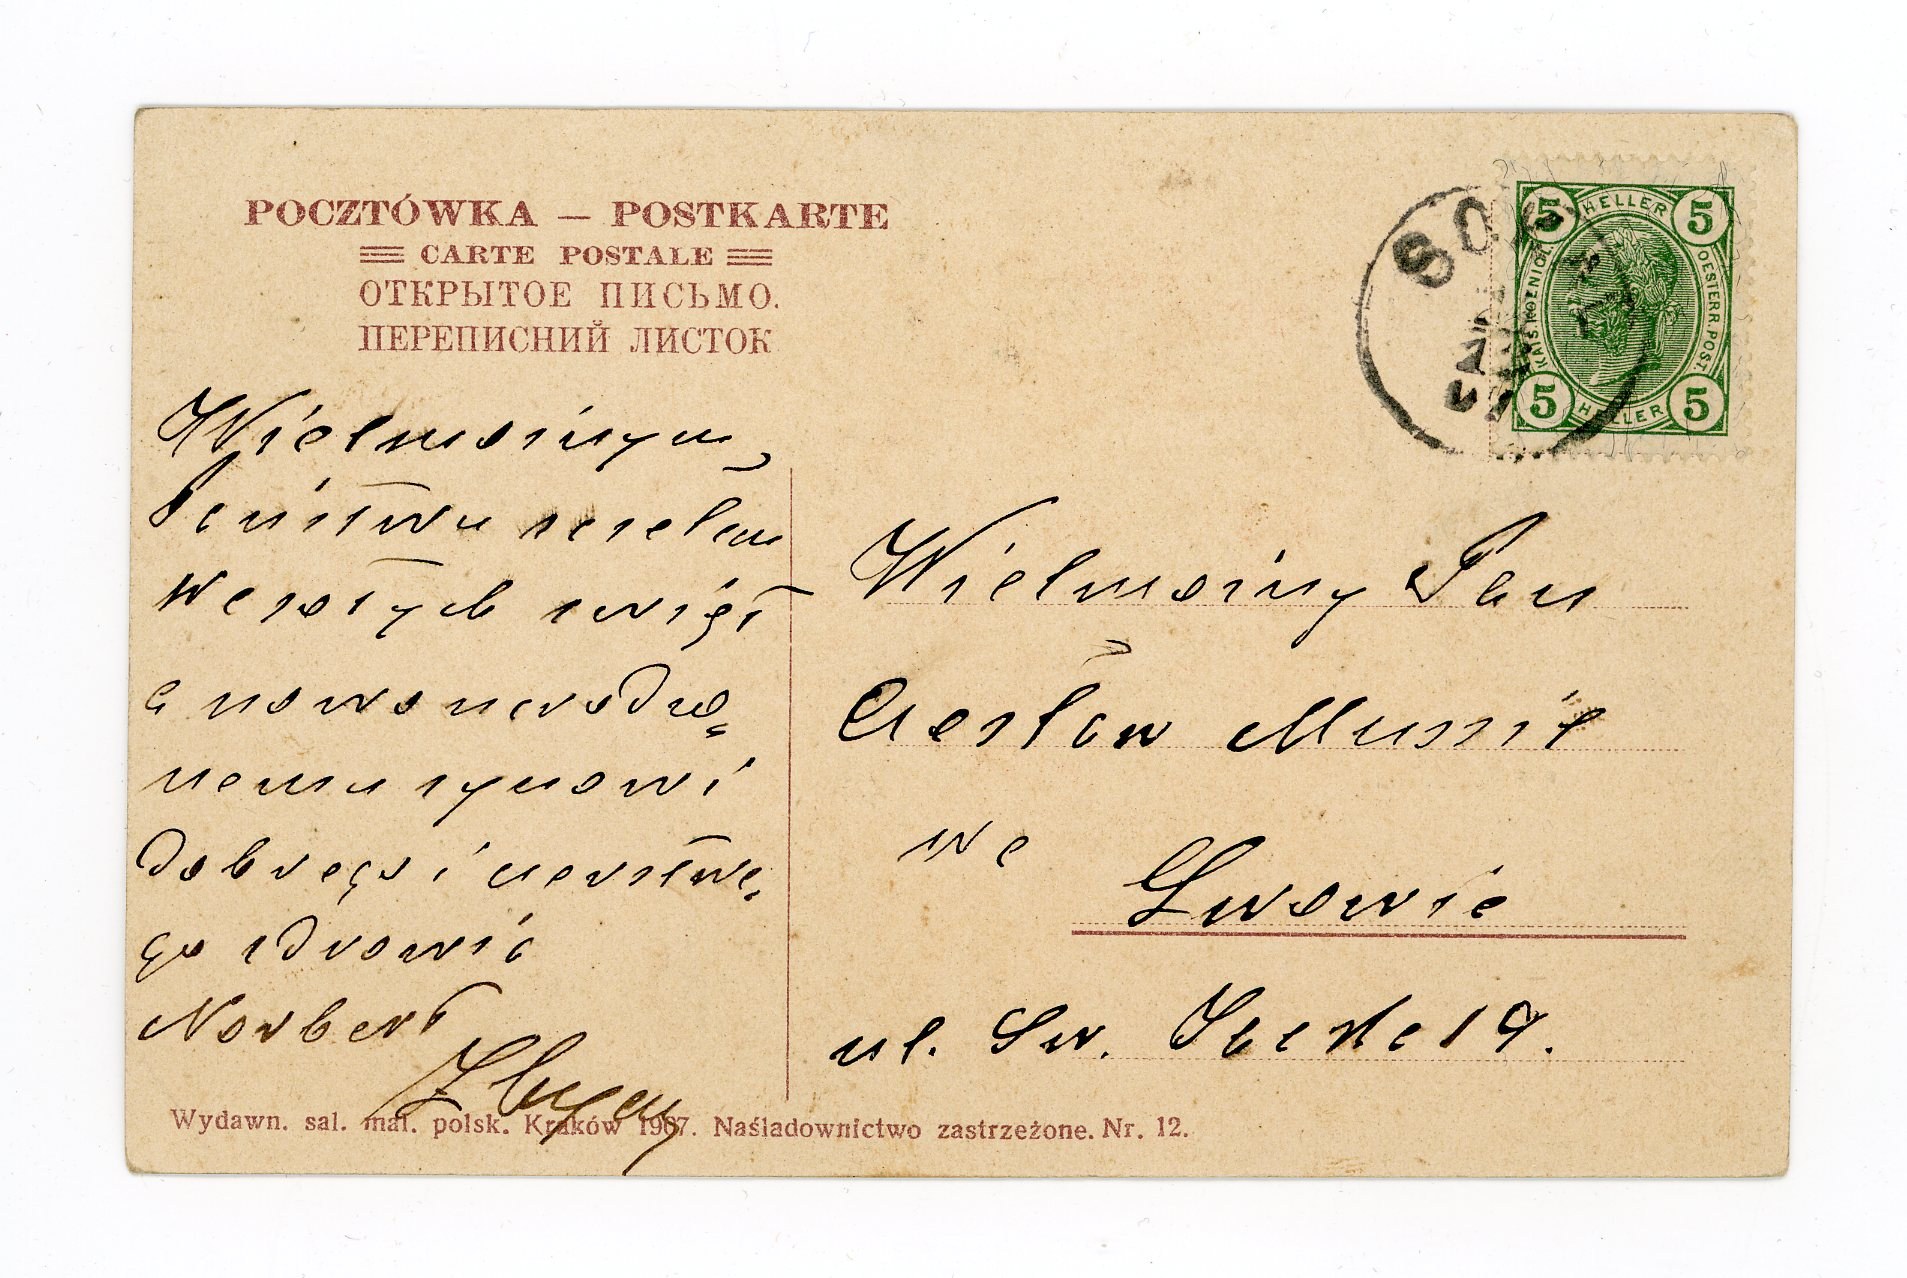 POCZTÓWKA — POSTKARTE
CARTE POSTALE
ОТКРЫТОЕ ПИСЬМО.
ПЕРЕПИСНИЙ ЛИСТОК
5 HELLER 5
KAIS. KOENIGL. OESTERR. POST.
5 HELLER 5
Wielmożnym
Państwu
wesołych świąt
a nowonarodzo=
nemu synowi
dobrego i czerstwe=
go zdrowia
Norbert
Wielmożny Pan
Czesław
we
Lwowie
ul. Św. 19.
Wydawn. sal. mal. polsk. Kraków 1907. Naśladownictwo zastrzeżone. Nr. 12.